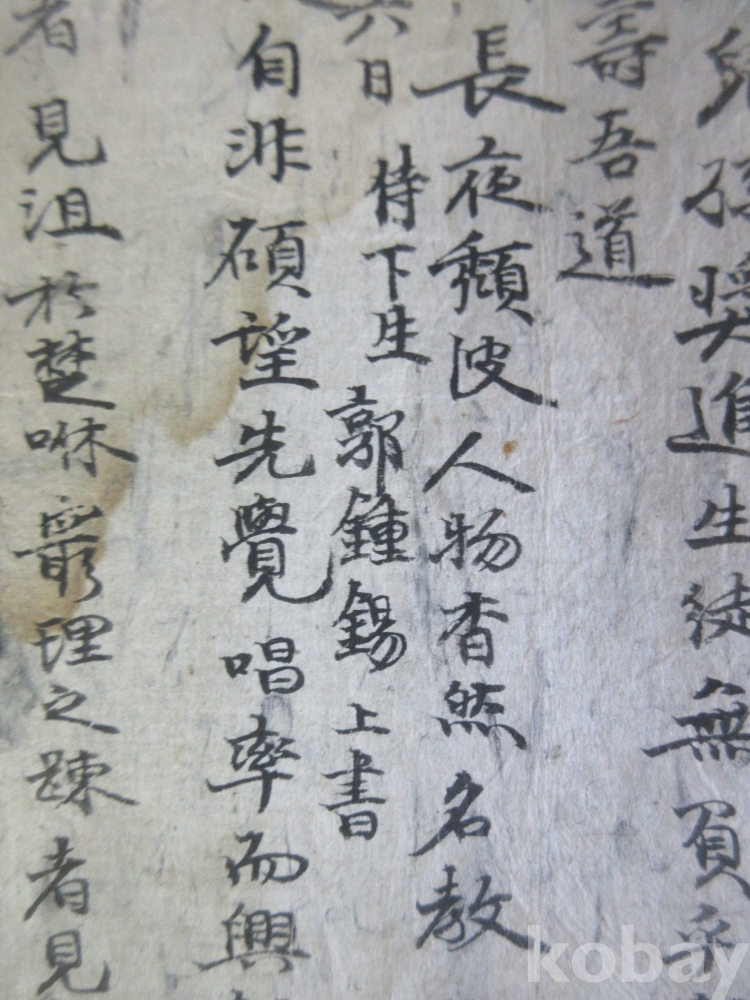 孫奬進生徒無負
壽吾道
長夜頹波人物杳然名教
六日 侍下生 郭鍾錫 上書
自非碩望先覺唱率而興
者見沮於楚咻窮理之踈者見
kobay